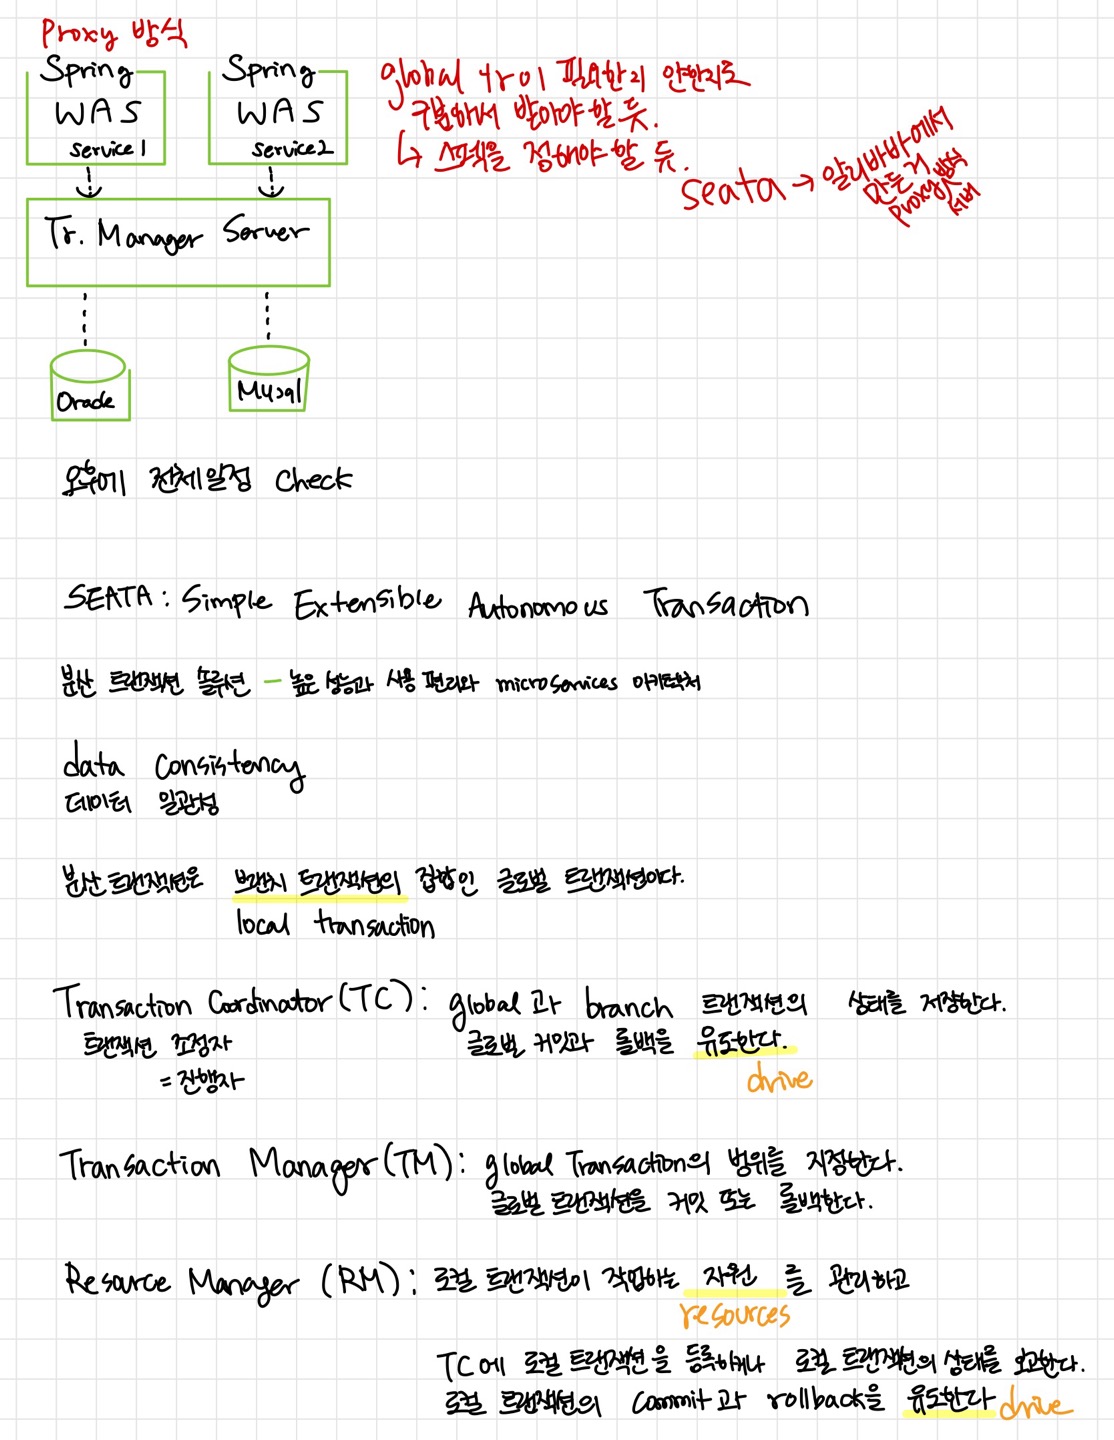 Proxy 방식
Spring
WAS
service1
Spring
WAS
service2
global tr이 필요한지 안한지도
구분해서 받아야 할 듯.
↳ 스펙을 정해야 할 듯.
seata → 알리바바에서
만든 거
proxy 방식
서버
Tr. Manager Server
Oracle
Mysql
오후에 전체일정 check
SEATA : Simple Extensible Autonomous Transaction
분산 트랜잭션 솔루션 - 높은 성능과 사용 편리와 microservices 아키텍처
data consistency
데이터 일관성
분산 트랜잭션은 브랜치 트랜잭션의 집합인 글로벌 트랜잭션이다.
local transaction
Transaction Coordinator(TC) : global과 branch 트랜잭션의 상태를 저장한다.
트랜잭션 조정자
글로벌 커밋과 롤백을 유도한다.
= 진행자
drive
Transaction Manager(TM) : global Transaction의 범위를 지정한다.
글로벌 트랜잭션을 커밋 또는 롤백한다.
Resource Manager (RM) : 로컬 트랜잭션이 작업하는 자원 을 관리하고
resources
TC에 로컬 트랜잭션을 등록하거나 로컬 트랜잭션의 상태를 보고한다.
로컬 트랜잭션의 commit과 rollback을 유도한다 drive